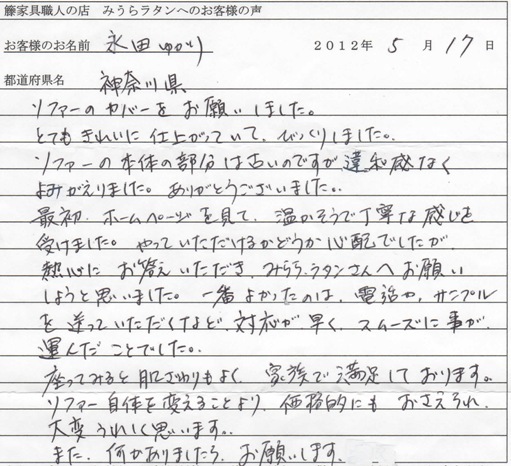 籐家具職人の店 みうらラタンへのお客様の声
お客様のお名前 永田ゆかり 2012年 5月 17日
都道府県名 神奈川県
ソファーのカバーをお願いしました。
とてもきれいに仕上がっていて、びっくりしました。
ソファーの本体の部分は古いのですが違和感なく
よみがえりました。ありがとうございました。
最初、ホームページを見て、温かそうで丁寧な感じを
受けました。やっていただけるかどうか心配でしたが、
熱心にお答えいただき、みうらラタンさんへお願い
しようと思いました。一番よかったのは、電話や、サンプル
を送っていただくなど、対応が早く、スムーズに事が
運んだことでした。
座ってみると肌ざわりもよく、家族で満足しております。
ソファー自体を変えることより、価格的にもおさえられ、
大変うれしく思います。
また、何かありましたら、お願いします。